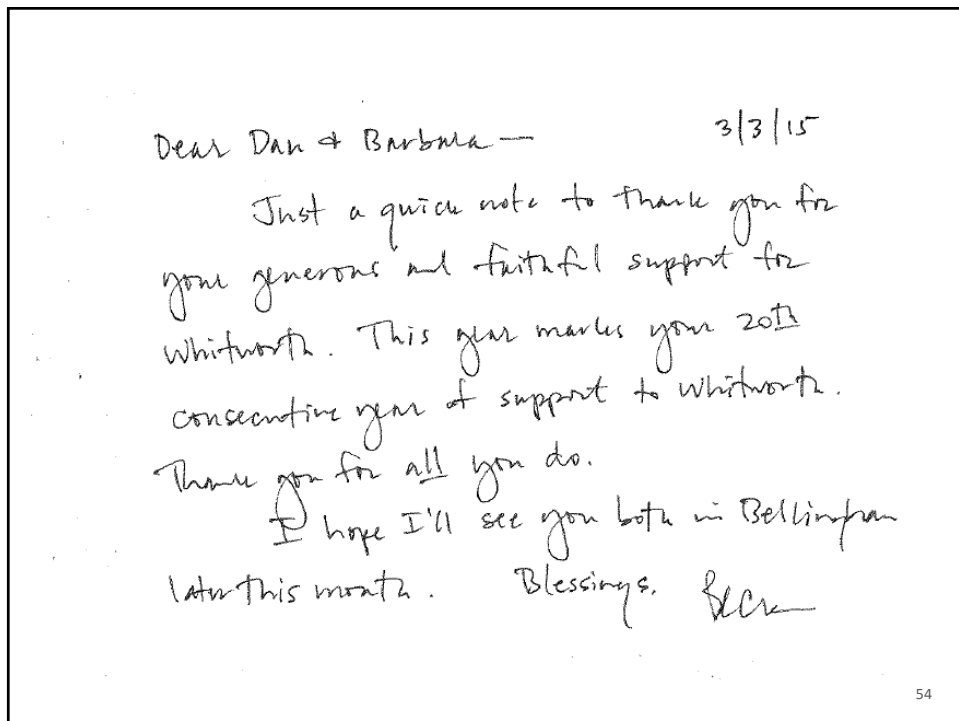 Dear Dan & Barbara — 3/3/15
Just a quick note to thank you for
your generous and faithful support for
Whitworth. This year marks your 20th
consecutive year of support to Whitworth.
Thank you for all you do.
I hope I'll see you both in Bellingham
later this month. Blessings,
54